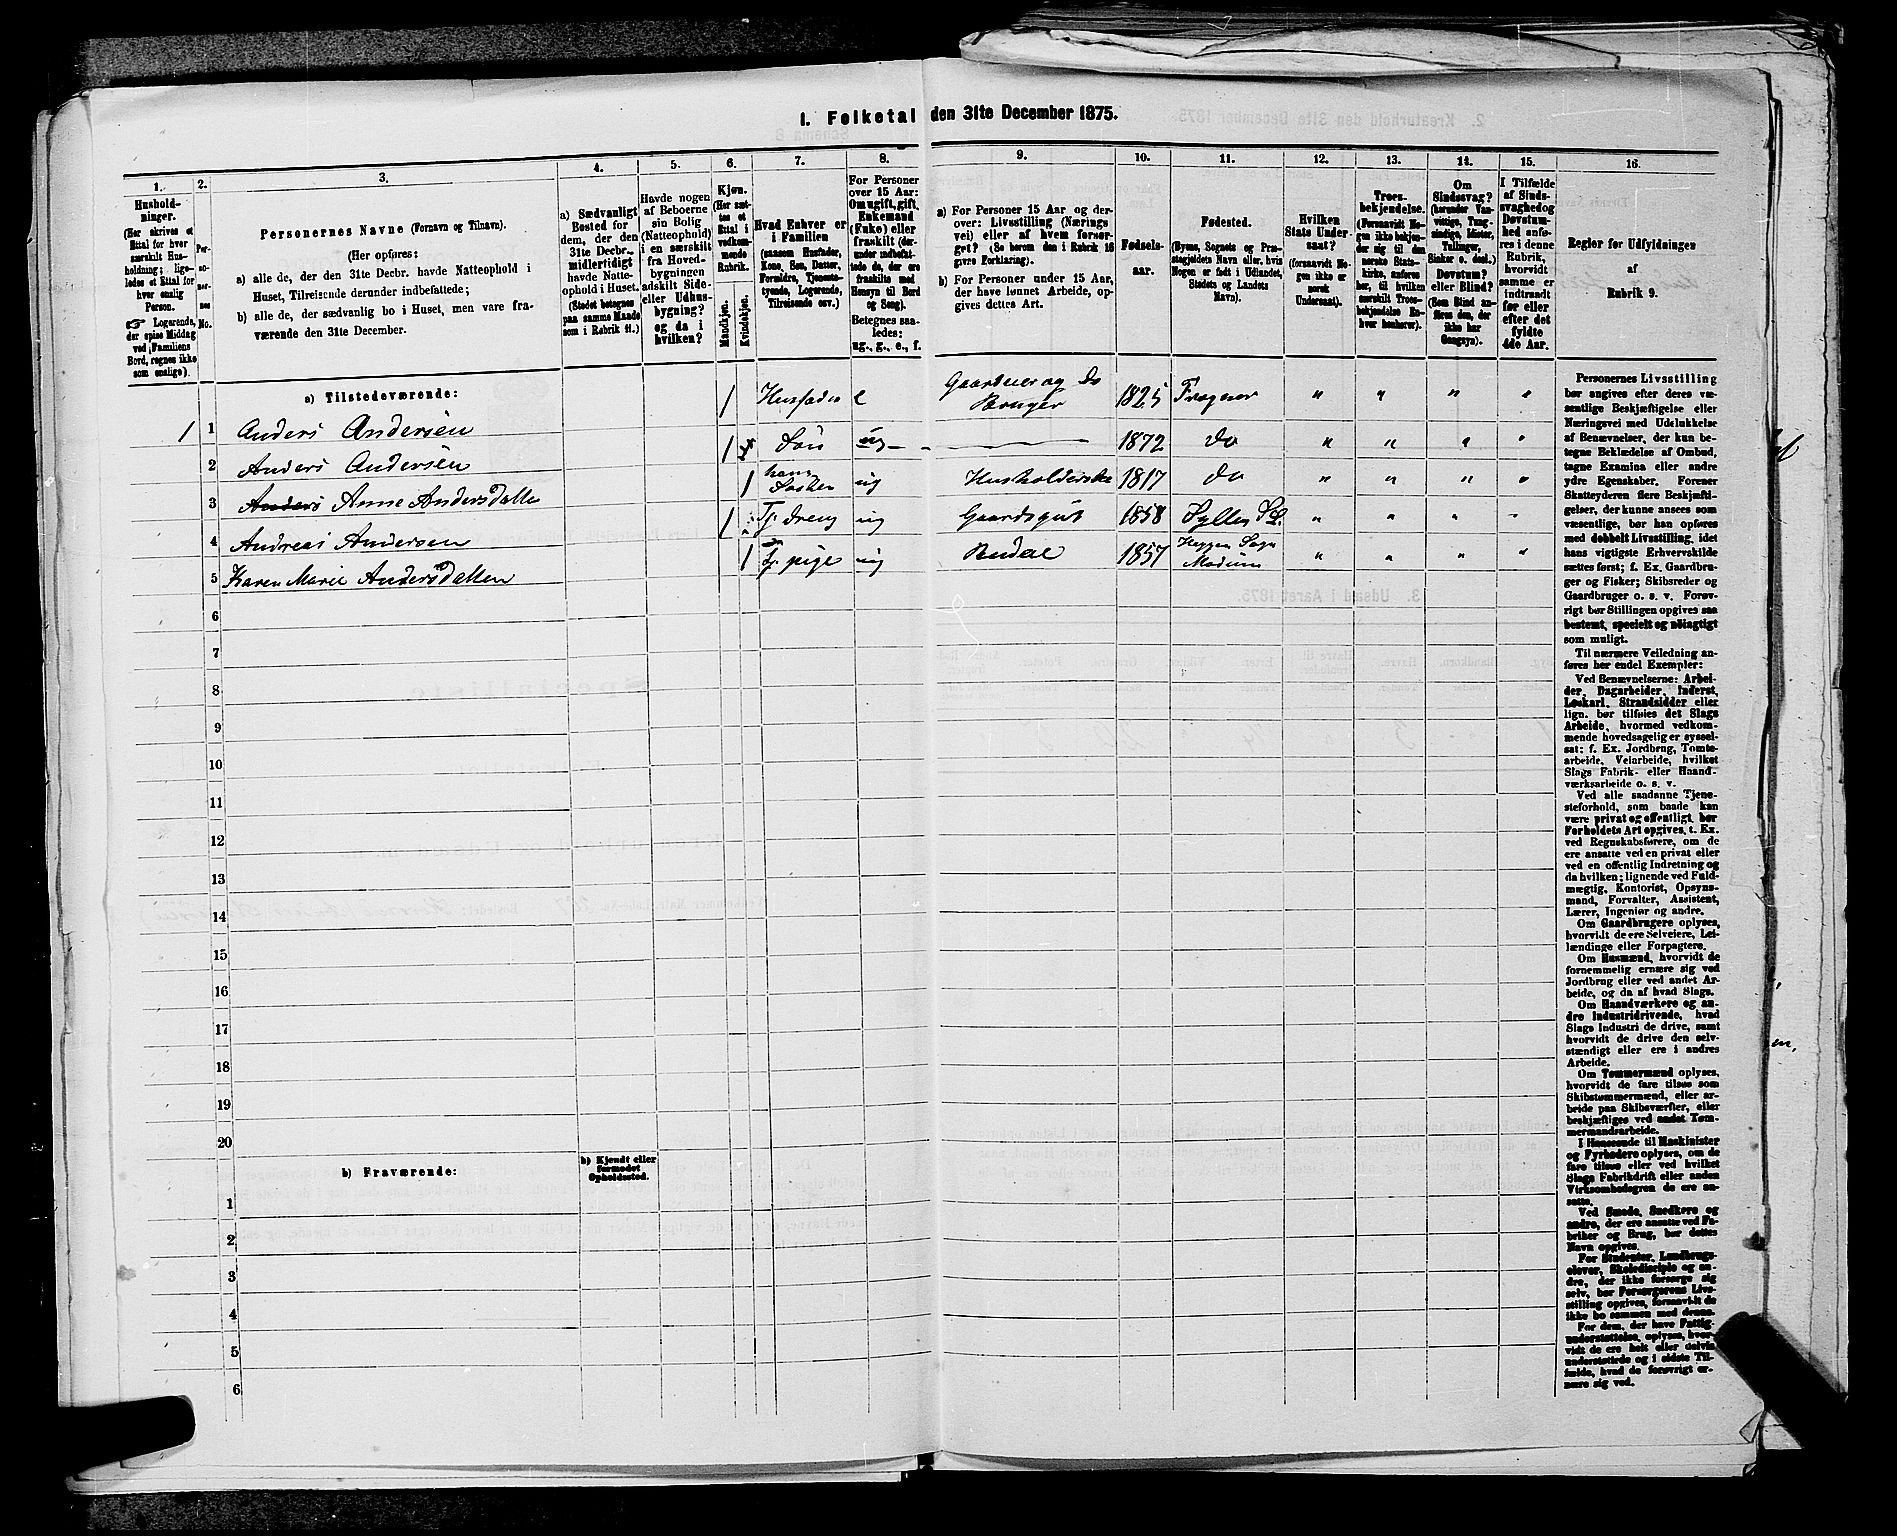 1. Folketal den 31te December 1875.
1.
2.
3.
4.
5.
6.
7.
8.
9.
10.
11.
12.
13.
14.
15.
16.
Hushold-
ninger.
(Her skrives et
Ettal for hver
særskilt Hus-
holdning; lige-
ledes et Ettal for
hver enslig
Person.
☞ Logerende,
der spise Middag
ved Familiens
Bord, regnes ikke
som enslige).
Per-
so-
ner-
nes
No.
Personernes Navne (Fornavn og Tilnavn).
(Her opføres:
a) alle de, der den 31te Decbr. havde Natteophold i
Huset, Tilreisende derunder indbefattede;
b) alle de, der sædvanlig bo i Huset, men vare fra-
værende den 31te December.
a) Sædvanligt
Bosted for
dem, der den
31te Decbr.
midlertidigt
havde Natte-
ophold i Huset.
(Stedet betegnes
paa samme Maade
som i Rubrik 11.)
Havde nogen
af Beboerne
sin Bolig
(Natteophold)
i en særskilt
fra Hoved-
bygningen
adskilt Side-
eller Udhus-
bygning?
og da i
hvilken?
Kjøn.
(Her sæt-
tes et
Ettal i
vedkom-
mende
Rubrik.
Mandkjøn.
Kvindekjøn.
Hvad Enhver er
i Familien
(saasom Husfader,
Kone, Søn, Datter,
Forældre, Tjeneste-
tyende, Logerende,
Tilreisende osv.)
For Personer
over 15 Aar:
Om ugift, gift,
Enkemand
(Enke) eller
fraskilt (der-
under indbefat-
tede de, der ere
fraskilte med
Hensyn til Bord
og Seng).
Betegnes saa-
ledes:
ug., g., e., f.
a) For Personer 15 Aar og der-
over: Livsstilling (Nærings-
vei) eller af hvem forsør-
get? (Se herom den i Rubrik 16
givne Forklaring).
b) For Personer under 15 Aar,
der have lønnet Arbeide, op-
gives dettes Art.
Fødsels-
aar.
Fødested.
(Byens, Sognets og Præ-
stegjeldets Navn eller, hvis
Nogen er født i Udlandet,
Stedets og Landets
Navn).
Hvilken
Stats Under-
saat?
(forsaavidt No-
gen ikke er
norsk
Undersaat).
Troes-
bekjendelse.
(Forsaavidt No-
gen ikke bekjen-
der sig til den
norske Stats-
kirke, anføres
her, til hvilken
særskilt Troes-
bekjendelse En-
hver henhører).
Om
Sindssvag?
(herunder Van-
vittige, Tung-
sindige, Idioter,
Tullinger,
Sinker o. desl.)
Døvstum?
eller Blind?
(Som Blind an-
føres den, der
ikke har
Gangsyn).
I Tilfælde
af Sinds-
svaghed og
Døvstum-
hed anfø-
res i denne
Rubrik,
hvorvidt
samme er
indtraadt
før eller
efter det
fyldte
4de Aar.
Regler for Udfyldningen
af
Rubrik 9.
a) Tilstedeværende:
1 1 Anders Andersen 1 Husfader e Gaardeier og Do Bruger 1825 Frogner " " " "
2 Anders Andersen 1 Søn ug 1872 do " " " "
3 Anders Anne Andersdatter 1 hans Søster ug Husholderske 1817 do " " " "
4 Andreas Andersen 1 Tj. dreng ug Gaardsgut 1858 " " " "
5 Karen Marie Andersdatter 1 Tj. pige ug Budeie 1857 Heggen Sogn Modum " " " "
6
7
8
9
10
11
12
13
14
15
16
17
18
19
20
b) Fraværende:
b) Kjendt eller
formodet
Opholdssted.
1
2
3
4
5
6
Personernes Livsstilling
bør angives efter deres væ-
sentlige Beskjæftigelse eller
Næringsvei med Udelukkelse
af Benævnelser, der kun be-
tegne Beklædelse af Ombud,
tagne Examina eller andre
ydre Egenskaber. Forener
Skatteyderen flere Beskjæfti-
gelser, der kunne ansees som
væsentlige, bør han opføres
med dobbelt Livsstilling, idet
hans vigtigste Erhvervskilde
sættes først; f. Ex. Gaardbru-
ger og Fisker; Skibsreder og
Gaardbruger o. s. v. Forøv-
rigt bør Stillingen opgives saa
bestemt, specielt og nøiagtigt
som muligt.
Til nærmere Veiledning an-
føres her endel Exempler:
Ved Benævnelserne: Arbei-
der, Dagarbeider, Inderst,
Løskarl, Strandsidder eller
lign. bør tilføies det Slags
Arbeide, hvormed vedkom-
mende hovedsagelig er syssel-
sat; f. Ex. Jordbrug, Tomte-
arbeide, Veiarbeide, hvilket
Slags Fabrik- eller Haand-
værksarbeide o. s. v.
Ved alle saadanne Tjene-
steforhold, som baade kan
være privat og offentligt, bør
Forholdets Art opgives, t. Ex.
ved Regnskabsførere, om de
ere ansatte ved en privat eller
ved en offentlig Indretning og
da hvilken; lignende ved Fuld-
mægtig, Kontorist, Opsyns-
mand, Forvalter, Assistent,
Lærer, Ingeniør og andre.
Om Gaardbrugere oplyses,
hvorvidt de ere Selveiere, Lei-
lændinge eller Forpagtere.
Om Husmænd, hvorvidt de
fornemmelig ernære sig ved
Jordbrug eller ved andet Ar-
beide, og da af hvad Slags.
Om Haandværkere og an-
dre Industridrivende, hvad
Slags Industri de drive, samt
hvorvidt de drive den selv-
stændigt eller ere i andres
Arbeide.
Om Tømmermænd oplyses,
hvorvidt de fare tilsøs som
Skibstømmermænd, eller ar-
beide paa Skibsværfter, eller
beskjæftiges ved andet Tøm-
mermandsarbeide.
I Henseende til Maskinister
og Fyrbødere oplyses, om de
fare tilsøs eller ved hvilket
Slags Fabrikdrift eller anden
Virksomhedsgren de ere an-
satte.
Ved Smede, Snedkere og
andre, der ere ansatte ved Fa-
briker og Brug, bør dettes
Navn opgives.
For Studenter, Landbrugs-
elever, Skoledisciple og an-
dre, der ikke forsørge sig
selv, bør Forsørgerens Livs-
stilling opgives, forsaavidt de
ikke bo sammen med denne.
For dem, der have Fattig-
understøttelse, oplyses, hvor-
vidt de ere helt eller delvis
understøttede og i sidste Til-
fælde, hvad de forøvrigt er-
nære sig ved.